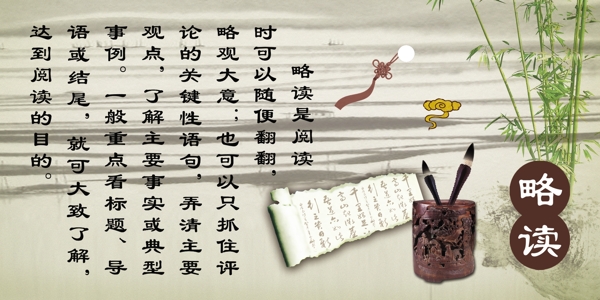 略读
略读是阅读
时可以随便翻翻，
略观大意；也可以只抓住评
论的关键性语句，弄清主要
观点，了解主要事实或典型
事例。一般重点看标题、导
语或结尾，就可大致了解，
达到阅读的目的。